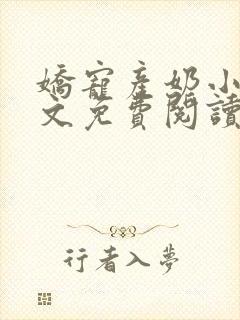 嬌寵產奶小
文免費閱讀
行者入夢